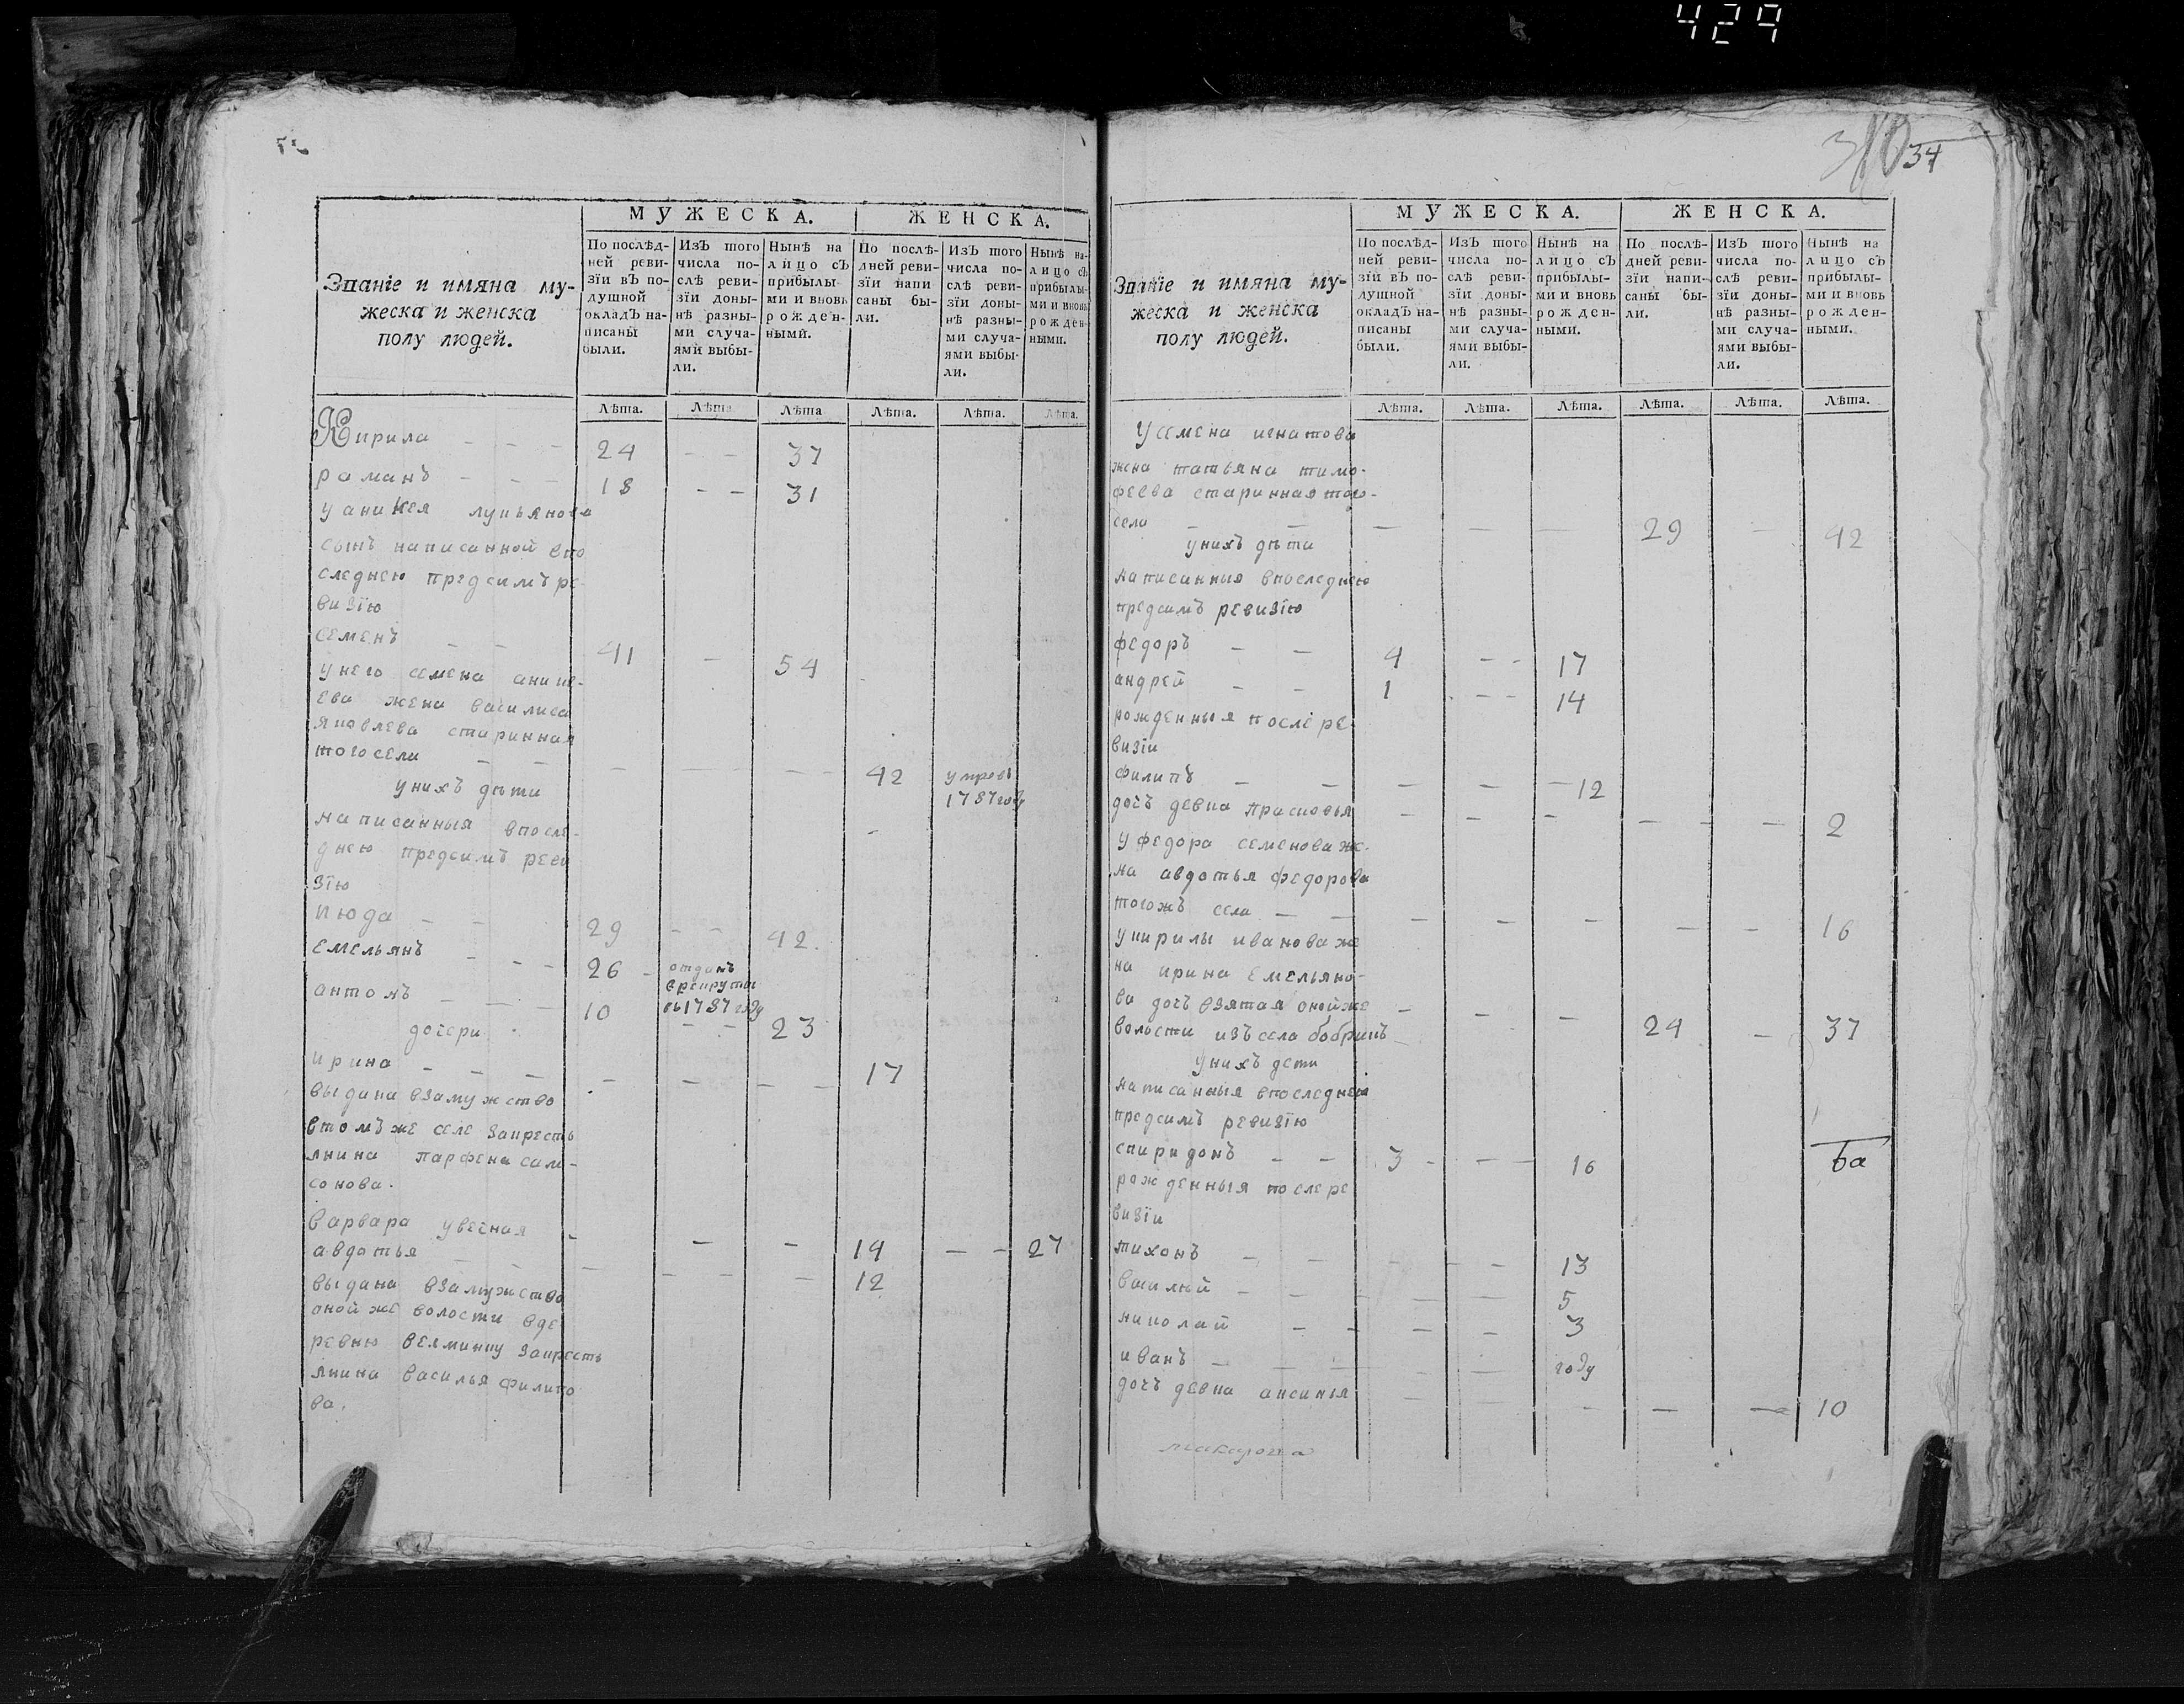 429
34
МУЖЕСКА. ЖЕНСКА.
Званїе и имяна му-
жеска и женска
полу людей.
По послѣд-
ней реви-
зїи вЪ по-
душной
окладЪ на-
писаны
были.
ИзЪ того
числа по-
слѣ реви-
зїи доны-
нѣ разны-
ми случа-
ями выбы-
ли.
Нынѣ на
лицо сЪ
прибылы-
ми и вновь
рожден-
ными.
По послѣ-
дней реви-
зїи напи
саны бы-
ли.
ИзЪ того
числа по-
слѣ реви-
зїи доны-
нѣ разны-
ми случа-
ями выбы-
ли.
Нынѣ на-
лицо сЪ
прибылы-
ми и вновь
рожден-
ными.
Лѣта. Лѣта Лѣта Лѣта. Лѣта. Лѣта.
Кирила - - - 24 - - 37
раманъ - - - 18 - - 31
уаникея лупьянова
сынъ написанной впо
следнею предсимъ ре-
визїю
семенъ - - 41 - 54
унего семена аники-
ева жена василиса
яковлева старинная
тогосела - - - - - - - 42 умре въ
1787 году
унихъ дѣти
написанныя впосле-
днею предсимъ реви
зїю
июда - - 29 - - 42.
емельянъ - - - 26 - отданъ
врекруты
въ 1787 году
антонъ - - - 10 - - 23
дочери
ирина - - - - - - - 17
выдана взамужство
втомъже селе закресть
янина парфена сам-
сонова.
варвара увечная - - - 14 - - 27
авдотья - - - - - - 12
выдана взамужство
оной же волости вде
ревню велмину закресть
янина василья филипо
ва.
МУЖЕСКА. ЖЕНСКА.
Званїе и имяна му-
жеска и женска
полу людей.
По послѣд-
ней реви-
зїи вЪ по-
душной
окладЪ на-
писаны
были.
ИзЪ того
числа по-
слѣ реви-
зїи доны-
нѣ разны-
ми случа-
ями выбы-
ли.
Нынѣ на
лицо сЪ
прибылы-
ми и вновь
рожден-
ными.
По послѣ-
дней реви-
зїи напи-
саны бы-
ли.
ИзЪ того
числа по-
слѣ реви-
зїи доны-
нѣ разны-
ми случа-
ями выбы-
ли.
Нынѣ на
лицо съ
прибылы-
ми и вновь
рожден-
ными.
Лѣта. Лѣта. Лѣта. Лѣта. Лѣта. Лѣта.
Усемена игнатова
жена татьяна тимо-
феева старинная того-
села - - - - - 29 - 42
унихъ дѣти
написанныя впоследнею
предсимъ ревизїю
федоръ - - 4 - - 17
андрей - - 1 - - 14
рожденныя послере-
визїи
филипъ - - - - - 12
дочъ девка прасковья - - - - - - 2
уфедора семенова же-
на авдотья федорова
тогожъ села - - - - - - - 16
укирилы иванова же
на ирина емельяно-
ва дочъ взятая онойже
волости изъ села бобрикъ - - - 24 - 37
унихъ дети
написанныя впоследнею
предсимъ ревизїю
спиридонъ - - 3 - - - 16
рожденныя послере
визїи
тихонъ - - - - - 13
василей - - - - - 5
николай - - - - 3
иванъ - - - - - году
дочъ девка аксинья - - - - - 10